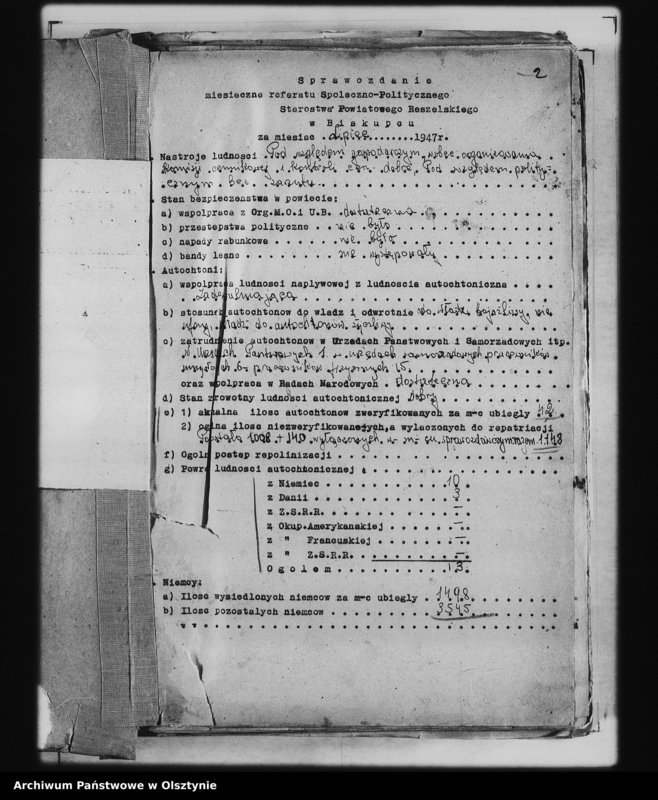 2
Sprawozdanie
miesieczne referatu Społeczno-Politycznego
Starostwa Powiatowego Reszelskiego
w Biskupcu
za miesiac . lipiec . . . . . . . . 1947r.
Nastroje ludnosci . Pod względem gospodarczym, wobec
Komisji cennikowej i kontroli cen dobre. Pod względem polity-
cznym bez
Stan bezpieczenstwa w powiecie:
a) wspolpraca z Org.M.O.i U.B. . dostateczna
b) przestepstwa polityczne . . nie było
c) napady rabunkowe . . . nie było
d) bandy lesne . . . nie występowały
Autochtoni:
a) wspolpraca ludnosci napływowej z ludnoscia autochtoniczna . . . .
Zadowalniająca
b) stosunek autochtonow do wladz i odwrotnie do władz bojaźliwy, nie
ufny, władz do autochtonów
c) zatrudnienie autochtonow w Urzedach Panstwowych i Samorzadowych itp.
W Urzędach Państwowych 1. w urzędach samorządowych pracowników
umysłowych 6. pracowników fizycznych 15.
oraz wpolpraca w Radach Narodowych . dostateczna
d) Stan zrowotny ludnosci autochtonicznej dobry
e) 1) aktualna ilosc autochtonow zweryfikowanych za m-c ubiegly . 42.
2) ogolna ilosc niezweryfikowanych,a wylaczonych do repatriacji
Pozostało 1008 + 140 wyłączonych w m-cu sprawozdawczym razem 1.148
f) Ogolny postep repolinizacji . . . .
g) Powrot ludnosci autochtonicznej :
z Niemiec . . . . 10 .
z Danii . . . . 3
z Z.S.R.R. . . . . —
z Okup.Amerykanskiej . . . . —
z " Francuskiej . . . . —
z " Z.S.R.R. . . . . —
Ogolem . . . . 13.
Niemcy:
a) Ilosc wysiedlonych niemcow za m-c ubiegly . 1498
b) Ilosc pozostalych niemcow . . . . 3545
Archiwum Państwowe w Olsztynie